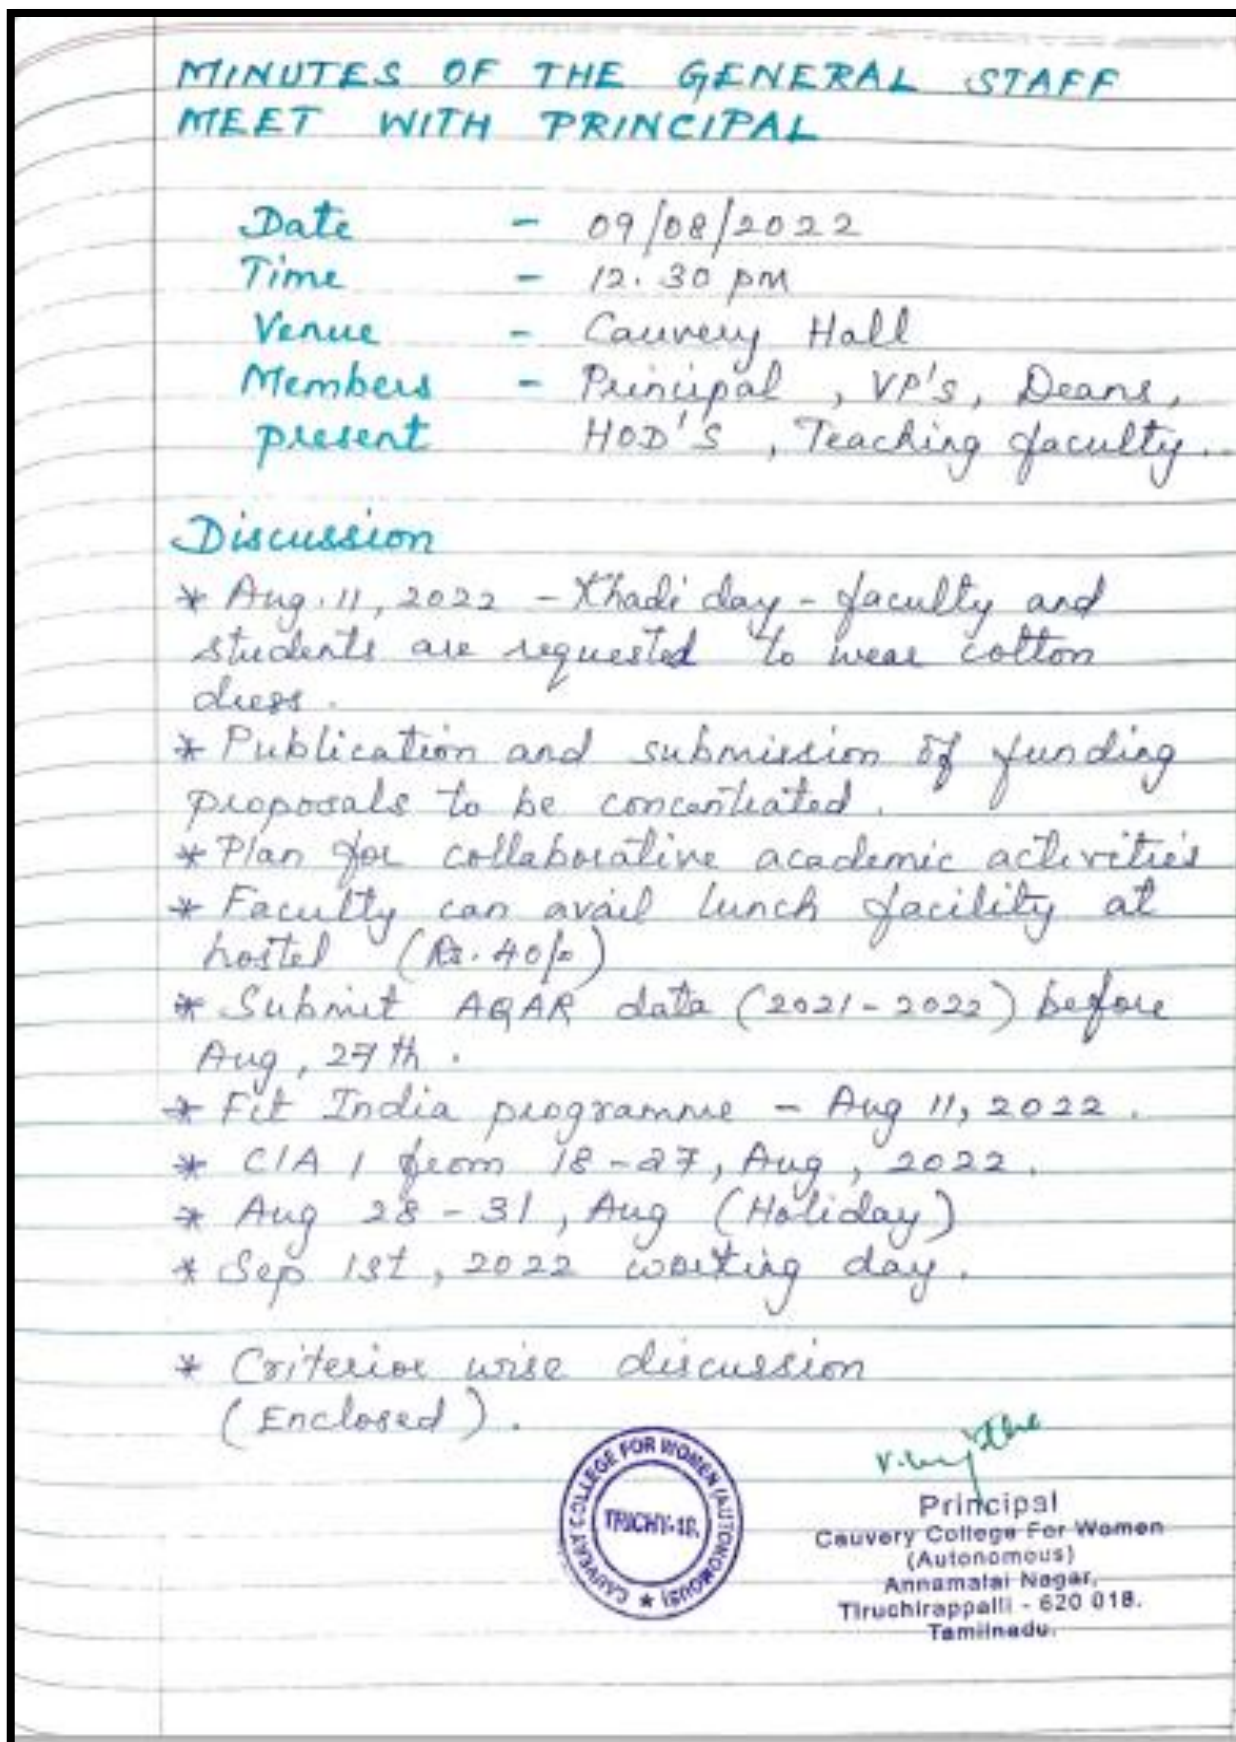 MINUTES OF THE GENERAL STAFF
MEET WITH PRINCIPAL
Date - 09/08/2022
Time - 12.30 pm
Venue - Cauvery Hall
Members - Principal , VP's, Deans,
present HOD'S , Teaching faculty.
Discussion
* Aug.11, 2022 - Khadi day - faculty and
students are requested to wear cotton
dress.
* Publication and submission of funding
proposals to be concentrated.
* Plan for collaborative academic activities
* Faculty can avail lunch facility at
hostel (Rs. 40/-)
* Submit AQAR data (2021-2022) before
Aug, 27th.
* Fit India programme - Aug 11, 2022.
* CIA 1 from 18-27, Aug, 2022.
* Aug 28 - 31, Aug (Holiday)
* Sep 1st, 2022 working day.
* Criterior wise discussion
(Enclosed).
CAUVERY COLLEGE FOR WOMEN (AUTONOMOUS) ★
TRICHY-18.
Principal
Cauvery College For Women
(Autonomous)
Annamalai Nagar,
Tiruchirappalli - 620 018.
Tamilnadu.